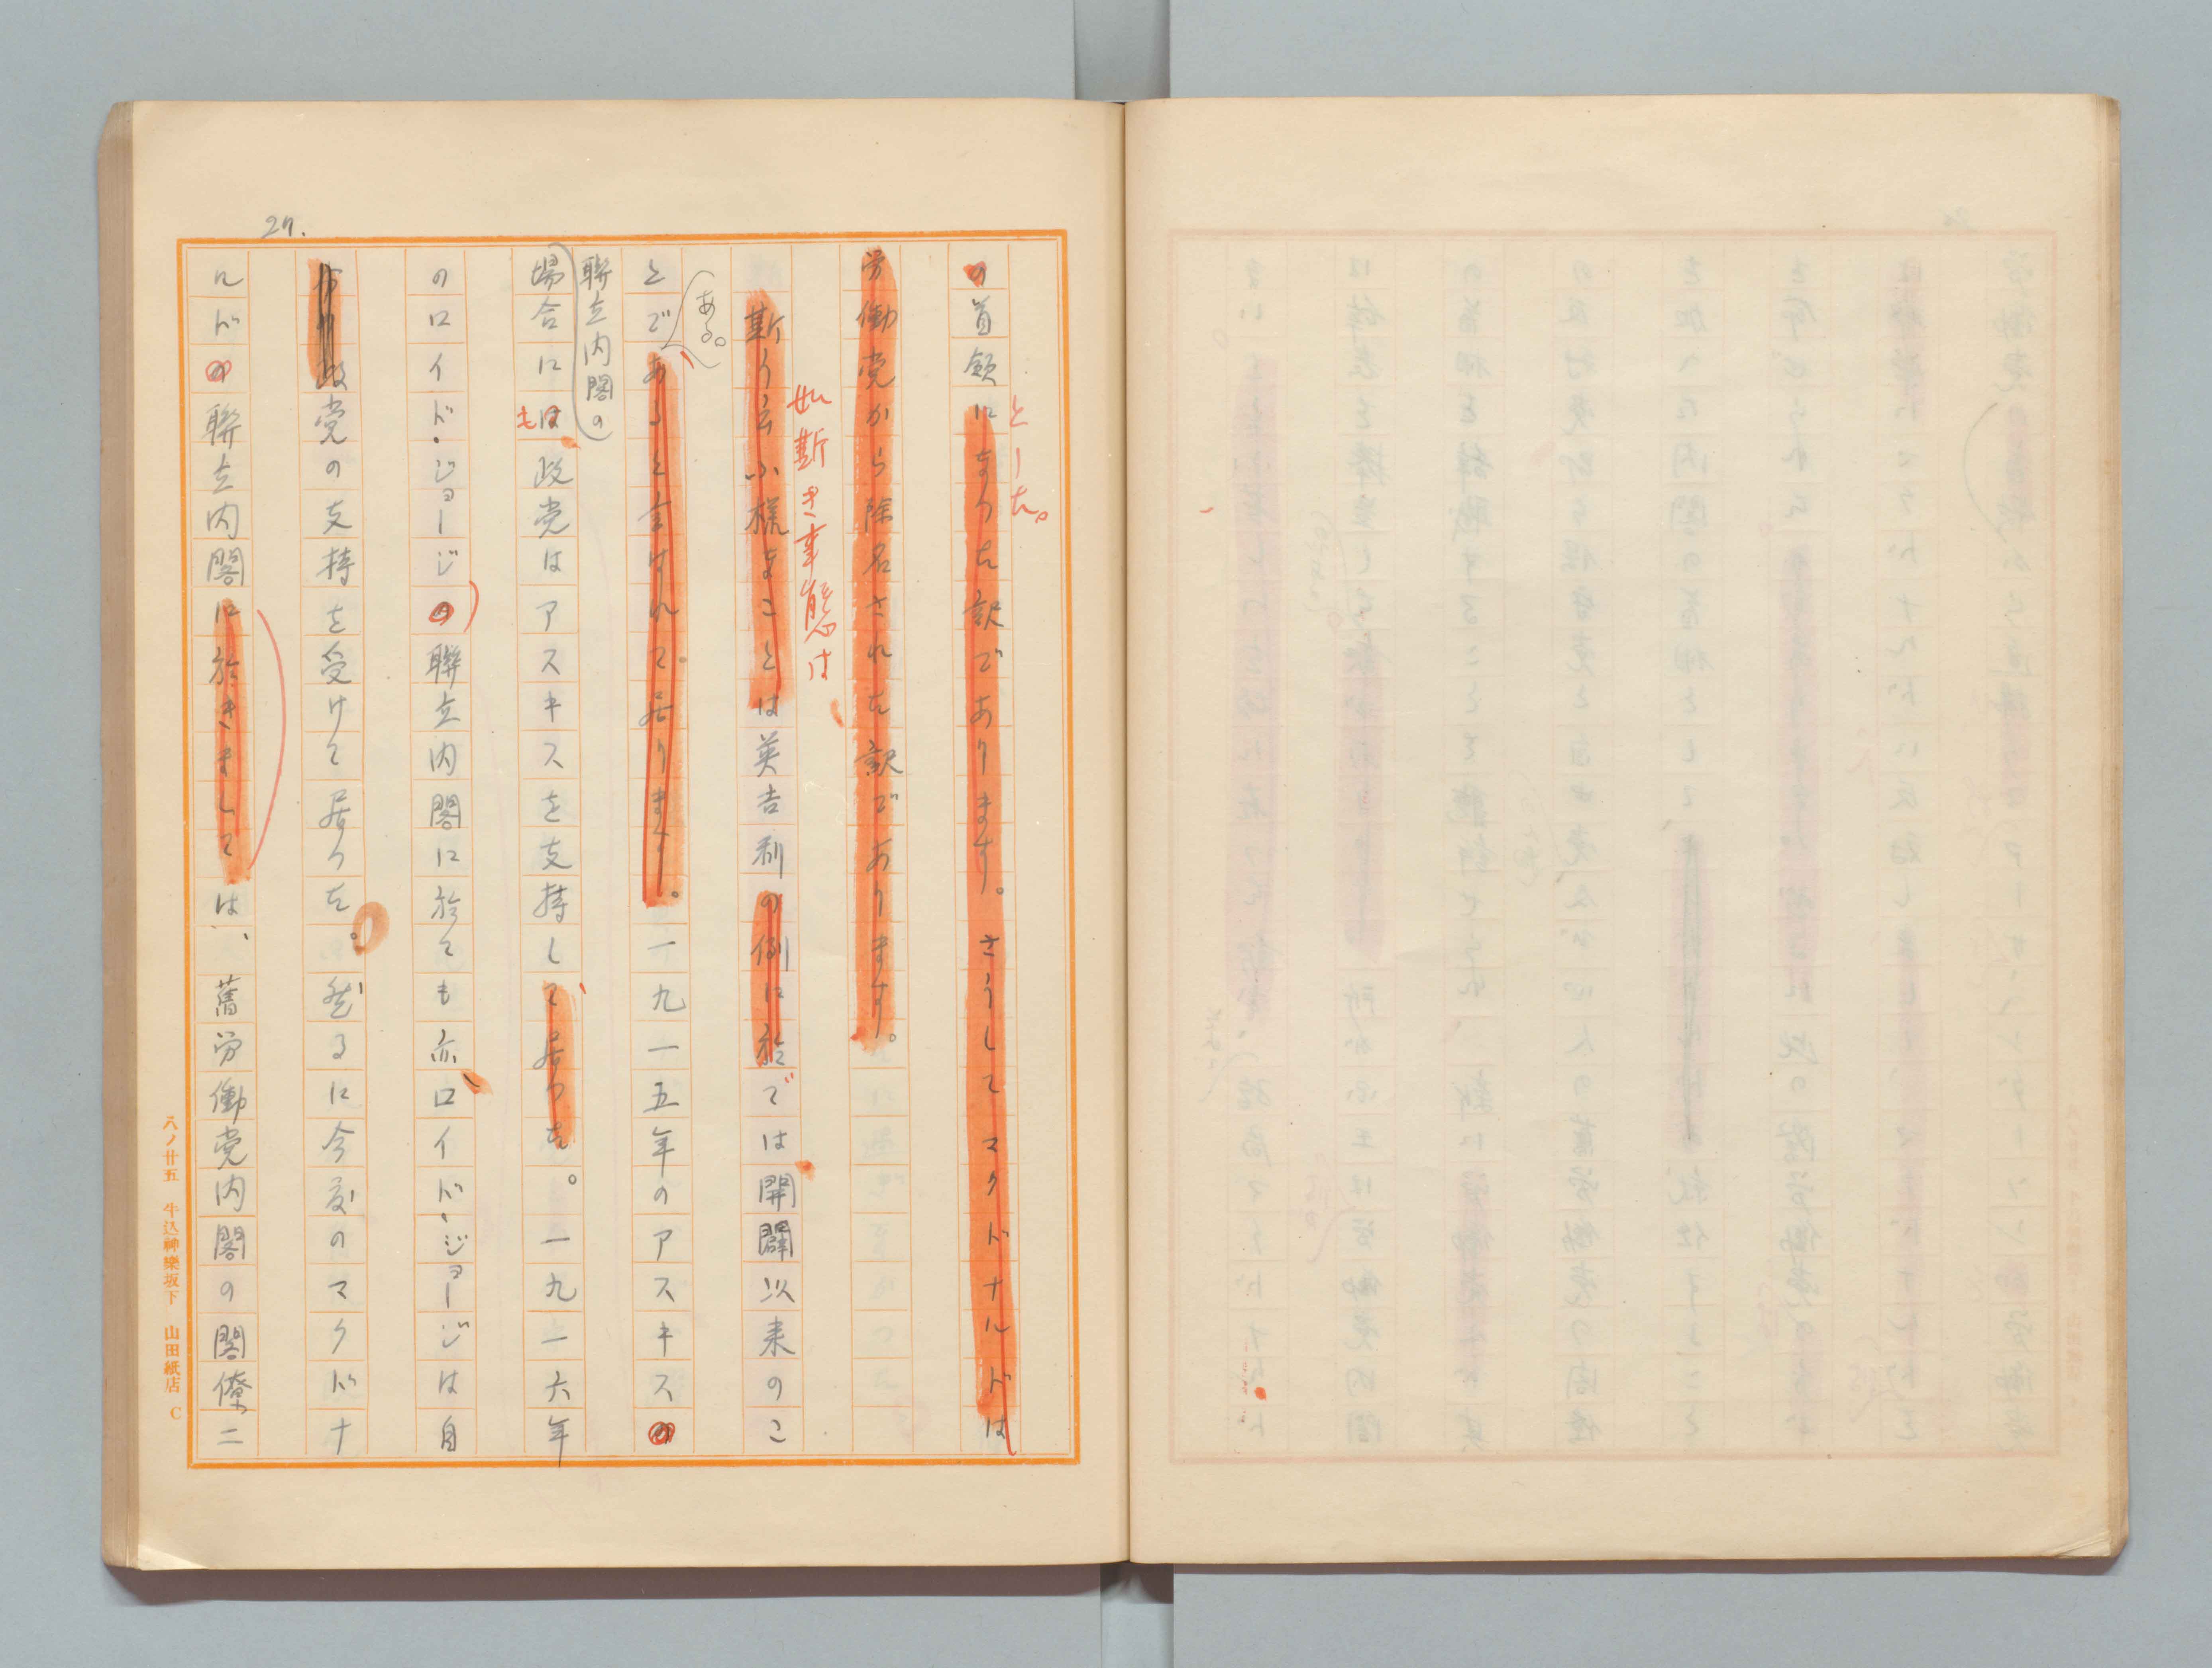 27.
の首領になつた訳であります。さうしてマクドナルドは
とした。
労働党から除名された訳であります。
如斯き事態は
斯う云ふ様なことは英吉利の例に於ては開闢以来のこ
ある。
とであると言はれて居ります。一九一五年のアスキスの
聯立内閣の
場合には政党はアスキスを支持して居つた。一九一六年
も
のロイド・ジョージの聯立内閣に於ても亦ロイド・ジョージは自
政党の支持を受けて居つた。然るに今度のマクドナ
ルドの聯立内閣に於きましては、舊労働党内閣の閣僚二
八ノ廿五 牛込神樂坂下 山田紙店 C